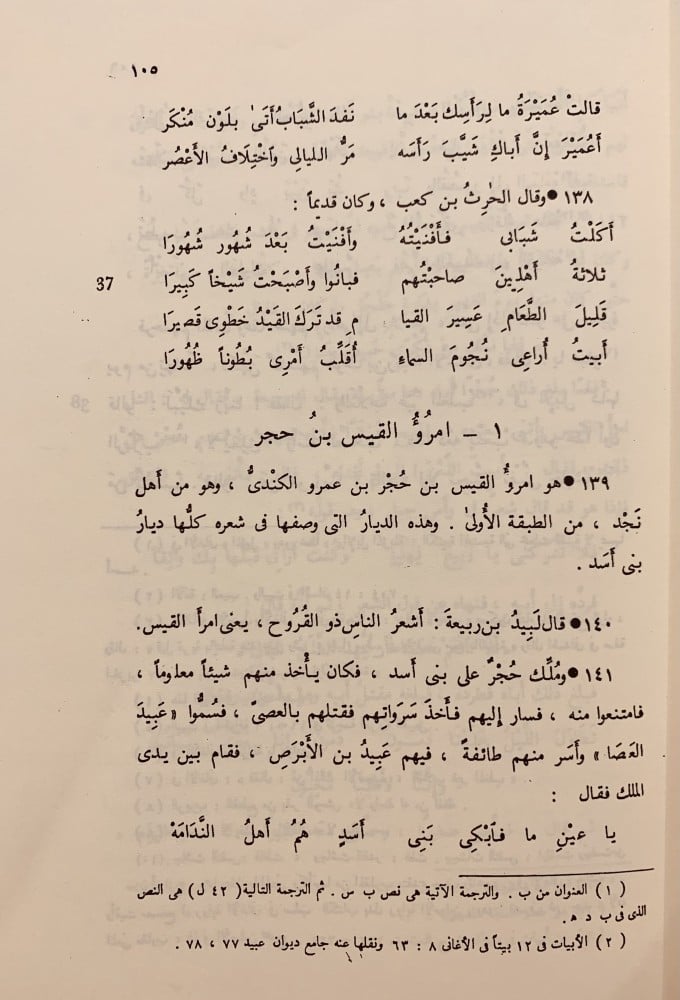 ١٠٥
قالتْ عُمَيْرَةُ ما لِرَأسِك بَعْدَ ما نَفَدَ الشَّبَابُ أَتَىٰ بلَوْن مُنْكَر
أَعُمَيْرَ إِنَّ أَباكِ شَيَّبَ رَأسَه مَرُّ الليالِي وٱخْتِلَافُ الأَعْصُر
١٣٨ • وقال الحٰرِثُ بن كعب ، وكان قديماً :
أَكَلْتُ شَبَابى فأَفْنَيْتُهُ وأَفْنَيْتُ بَعْدَ شُهُور شُهُورَا
ثلاثةُ أَهْلِينَ صاحبْتُهم فبانُوا وأَصْبَحْتُ شَيْخاً كَبِيرَا
37
قَلِيلَ الطَّعَامِ عَسِيرَ القيا مِ قد تَرَكَ القَيْدُ خَطْوِى قَصيرَا
أَبيتُ أُراعِى نُجُومَ السماءِ أُقَلِّبُ أَمْرِى بُطُوناً ظُهُورَا
١ – امرُؤُ القيس بنُ حجر
١٣٩ • هو امروُ القيس بن حُجْر بن عمرو الكنْدىُّ ، وهو من أهل
نَجْد ، من الطبقة الأُولىٰ . وهذه الديارُ التى وصفها فى شعره كلُّها ديارُ
بنى أَسَد .
١٤٠ • قال لَبِيدُ بن ربيعةَ : أَشعرُ الناسِ ذو القُرُوح ، يعنى امرأَ القيس.
١٤١ • ومُلِّك حُجْرٌ على بنى أسد ، فكان يأْخذ منهم شيئاً معلوماً ،
فامتنعوا منه ، فسار إليهم فأَخذَ سَرَواتِهم فقتلهم بالعصىِّ ، فسُمُّوا «عَبِيدَ
العَصَا» وأَسَر منهم طائفةً ، فيهم عَبِيدُ بن الأَبْرَصِ ، فقام بين يدى
الملك فقال :
يا عيْنِ ما فٱبْكِى بَنِى أَسَدٍ هُمُ أَهلُ النَّدَامَهْ
( ١ ) العنوان من ب . والترجمة الآتية هى نص ب س . ثم الترجمة التالية ( ٤٢ ل ) هى النص
الذى فى ب د ه .
( ٢ ) الأبيات فى ١٢ بيتاً فى الأغانى ٨ : ٦٣ ونقلها عنه جامع ديوان عبيد ٧٧ ، ٧٨ .